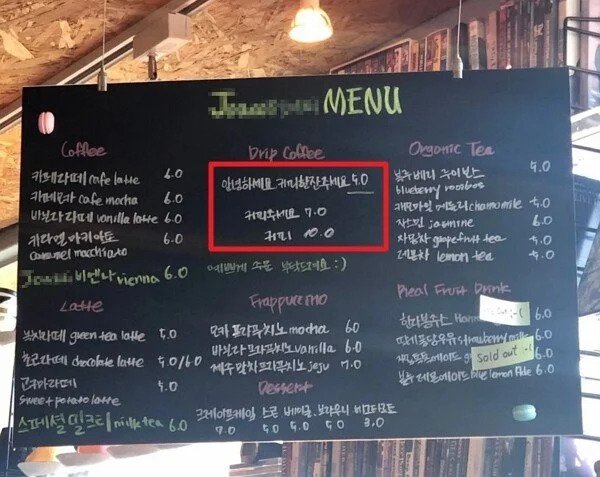 MENU
Coffee
카페라떼 cafe latte 6.0
카페모카 cafe mocha 6.0
바닐라라떼 vanilla latte 6.0
카라멜마키아또 6.0
caramel macchiato
비엔나 vienna 6.0
Latte
녹차라떼 green tea latte 5.0
초코라떼 chocolate latte 5.0/6.0
고구마라떼 5.0
sweet potato latte
스페셜밀크티 milk tea 6.0
Drip Coffee
안녕하세요 커피한잔주세요 5.0
커피주세요 7.0
커피 10.0
예쁘게 주문 부탁드려요 :)
Frappuccino
모카 프라푸치노 mocha 6.0
바닐라 프라푸치노 vanilla 6.0
제주말차프라푸치노 jeju 7.0
Dessert
크레이프케잌 스콘 베이글 브라우니
7.0 5.0 5.0 5.0 3.0
Organic Tea
블루베리 루이보스 5.0
blueberry rooibos
캐모마일 chamomile 5.0
자스민 jasmine 6.0
자몽차 grapefruit tea 5.0
레몬차 lemon tea 5.0
Real Fruit Drink
한라봉주스 6.0
딸기 strawberry milk 6.0
Sold out :-(
블루레몬에이드 blue lemon Ade 6.0